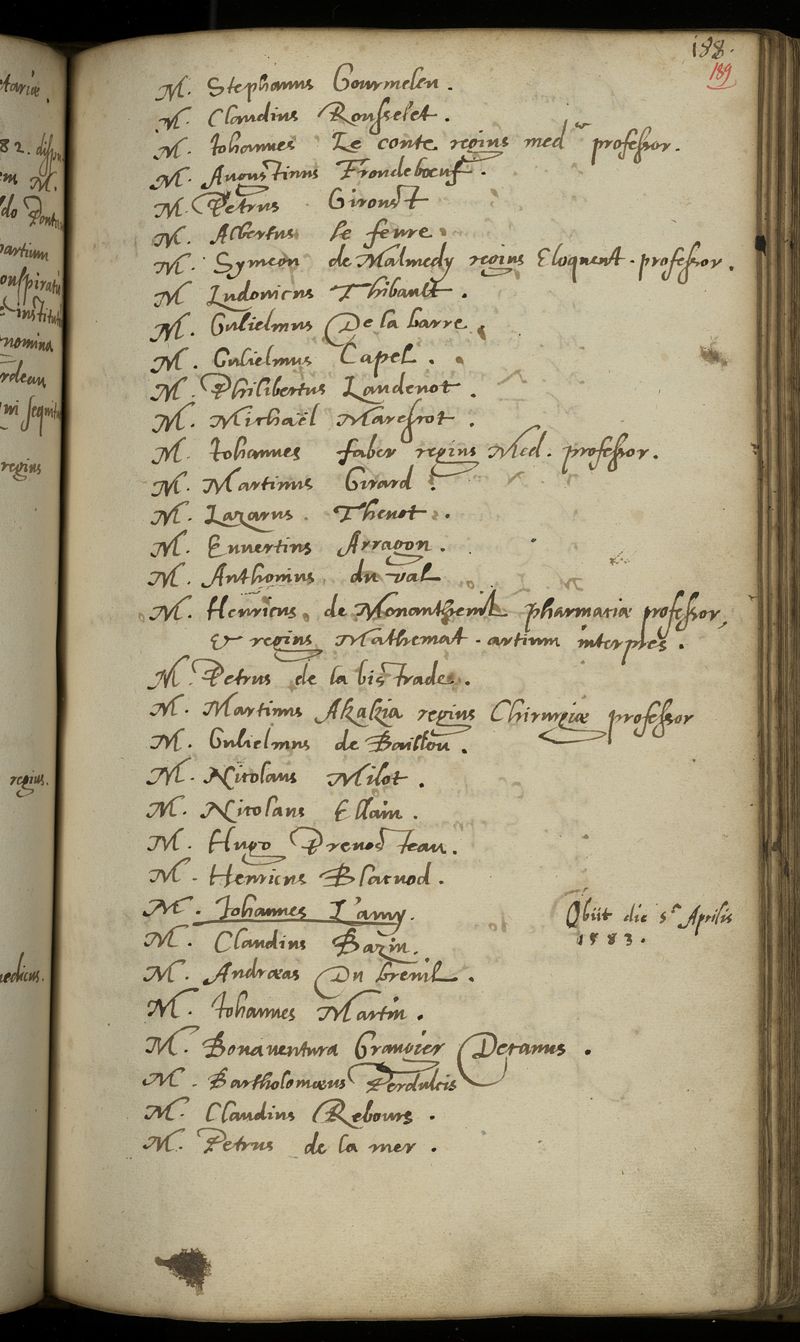 188.
189
M. Stephanus Gourmelen.
M. Claudius Rousselet.
M. Iohannes Le conte regius med professor.
M. Augustinus Frondeboeuf.
M. Petrus Giroust
M. Albertus le feure.
M. Symeon de Malmedy regius Eloquent. professor.
M Ludouicus Thibault.
M. Gulielmus De la barre.
M. Gulielmus Capel.
M. Philibertus Landenot.
M. Michaël Marescot.
M. Iohannes faber regius Med. professor.
M. Martinus Girard.
M. Lazarus Thenot.
M. Euuertius Arragon.
M. Anthonius du val
M. Henricus de Monantheuil pharmariæ professor,
& regius Mathemat. artium interpres.
M. Petrus de la bistrade.
M. Martinus Akakia regius Chirurgiæ professor
M. Gulielmus de Baillou.
M. Nicolaus Milot.
M. Nicolaus Ellain.
M. Hugo Preuosteau.
M. Henricus Blacuod.
M. Iohannes Lamy. Obiit die 5ª Aprilis
1583.
M. Claudius Bazin.
M. Andræas Du breuil.
M. Iohannes Martin.
M. Bonauentura Grangier Decanus.
M. Bartholomæus Perdulcis
M. Claudius Rebours.
M. Petrus de la mer.
tariæ
82.
M.
do
partium
nomina
regius
regius.